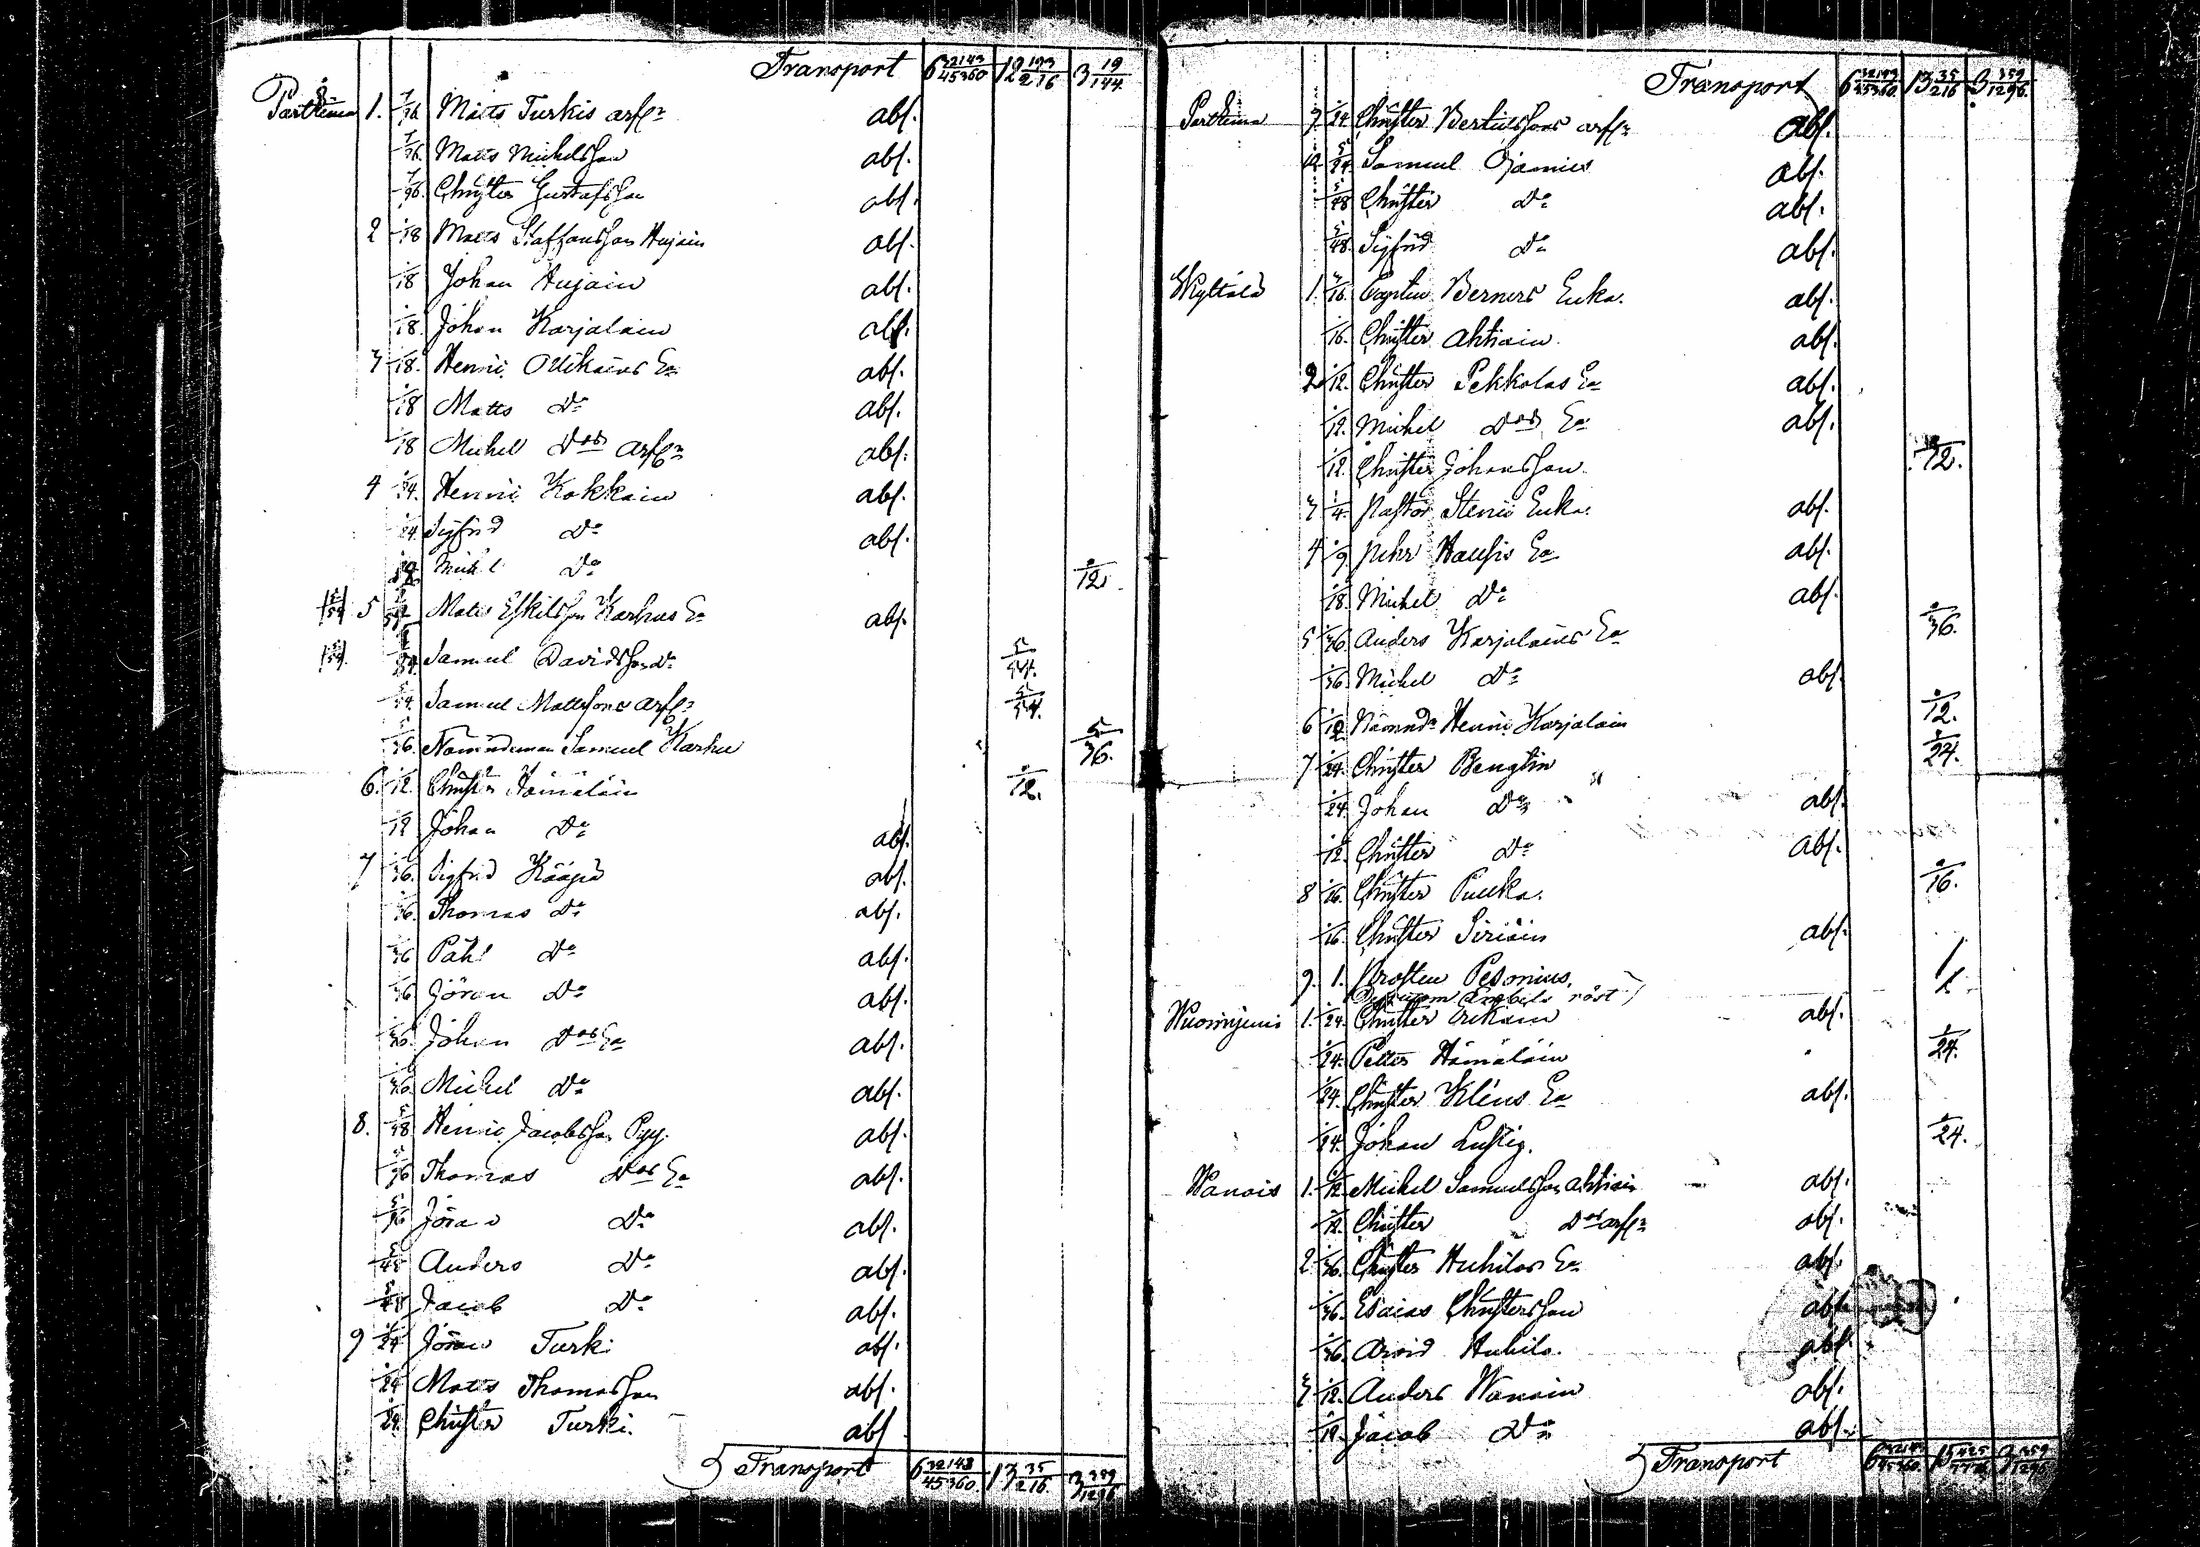 Transport 6 32143/45360 12 193/216 3 19/144
Parttima 1. 7/96 Matts Turkis arfr abs.
7/96. Matts Michelsson abs.
7/96. Christer Gustafsson abs.
2 1/18 Matts Staffansson Hujain abs.
1/18 Johan Hujain abs.
1/18. Johan Karjalain abs.
3 1/18. Henric Ollikains Ea abs.
1/18 Matts Do abs.
1/18 Michel Dos arfr abs.
4 1/24. Henric Kokkain abs.
1/24. Sigfrid Do abs.
Michel Do 1/12.
5 Matts Eskilsson Karhus Ea abs.
Samuel Davidsson Do 5/54.
5/54. Samuel Mattssons arfr 5/54.
5/36. Nämndeman Samuel Karhu 5/36.
6. 1/12. Christer Hämäläin 1/12.
1/12 Johan Do abs.
7 1/36. Sigfrid Kääpä abs.
1/36. Thomas Do abs.
1/36 Påhl Do abs.
1/36 Jöran Do abs.
1/36 Johan Dos Ea abs.
1/36 Michel Do abs.
8. 5/48 Henric Jacobsson Pyy. abs.
5/96 Thomas Dos Ea abs.
5/96 Jöran Do abs.
5/48 Anders Do abs.
5/48 Jacob Do abs.
9 1/24 Jöran Turki abs.
1/24 Matts Thomasson abs.
1/24. Christer Turki. abs
Transport 6 32143/45360 13 35/216. 3 359/1296
Transport 6 32143/45360. 13 35/216 3 359/1296.
Parttima 9. 1/24. Christer Bertilssons arfr abs.
10 5/24. Samuel Ojanies abs.
5/48 Christer Do abs.
5/48. Sigfrid Do abs.
Skyttälä 1. 1/16. Captein Berners Enka. abs.
1/16. Christer Ahtiain. abs.
2 1/12. Christer Pekkolas Ea abs.
1/12. Michel Dos Ea abs.
1/12. Christer Johansson. 1/12.
3 1/4. Pastor Stenii Enka. abs.
4 1/9. Pehr Ea abs.
1/18. Michel Do abs.
5 1/36 Anders Karjalains Ea 1/36.
1/36 Michel Do abs.
6 1/12 Nämnd: Henric Karjalain 1/12.
7 1/24. Christer Bengtin 1/24.
1/24. Johan Do abs.
1/12. Christer Do abs.
8 1/16. Christer Puukka. 1/16.
1/16. Christer Siriäin abs.
9. 1. Prosten Pesonius, 1.
röst)
Wuorinjemi 1. 1/24. Christer Erikain abs.
1/24. Petter Hämäläin 1/24.
1/24. Christer Kliins Ea abs.
1/24. Johan Lustig. 1/24.
Wanais 1. 1/12. Michel Samuelsson Ahtiain abs.
1/12. Christer Dos arfr abs.
2 1/36. Christer Huhilas Ea abs.
1/36. Esaias Christersson abs.
1/36. Arvid Huhila. abs.
3 1/12. Anders Wanain abs.
1/12. Jacob Do abs.
Transport